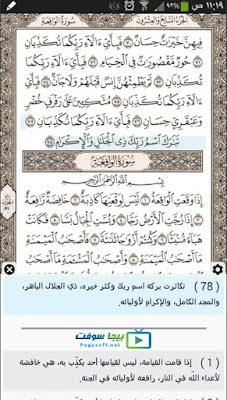 ١١:١٩ ص
٩٤%
الجزء السابع والعشرون
سورة الواقعة
فِيهِنَّ خَيْرَٰتٌ حِسَانٌ ﴿٧٠﴾ فَبِأَيِّ ءَالَآءِ رَبِّكُمَا تُكَذِّبَانِ
﴿٧١﴾ حُورٌ مَّقْصُورَٰتٌ فِى ٱلْخِيَامِ ﴿٧٢﴾ فَبِأَيِّ ءَالَآءِ رَبِّكُمَا
تُكَذِّبَانِ ﴿٧٣﴾ لَمْ يَطْمِثْهُنَّ إِنسٌ قَبْلَهُمْ وَلَا جَآنٌّ ﴿٧٤﴾ فَبِأَيِّ
ءَالَآءِ رَبِّكُمَا تُكَذِّبَانِ ﴿٧٥﴾ مُتَّكِـِٔينَ عَلَىٰ رَفْرَفٍ خُضْرٍ
وَعَبْقَرِىٍّ حِسَانٍ ﴿٧٦﴾ فَبِأَيِّ ءَالَآءِ رَبِّكُمَا تُكَذِّبَانِ ﴿٧٧﴾
تَبَٰرَكَ ٱسْمُ رَبِّكَ ذِى ٱلْجَلَٰلِ وَٱلْإِكْرَامِ ﴿٧٨﴾
سُورَةُ الْوَاقِعَةِ
بِسْمِ ٱللَّهِ ٱلرَّحْمَٰنِ ٱلرَّحِيمِ
إِذَا وَقَعَتِ ٱلْوَاقِعَةُ ﴿١﴾ لَيْسَ لِوَقْعَتِهَا كَاذِبَةٌ ﴿٢﴾ خَافِضَةٌ رَّافِعَةٌ
﴿٣﴾ إِذَا رُجَّتِ ٱلْأَرْضُ رَجًّا ﴿٤﴾ وَبُسَّتِ ٱلْجِبَالُ بَسًّا ﴿٥﴾ فَكَانَتْ
هَبَآءً مُّنۢبَثًّا ﴿٦﴾ وَكُنتُمْ أَزْوَٰجًا ثَلَٰثَةً ﴿٧﴾ فَأَصْحَٰبُ ٱلْمَيْمَنَةِ
مَآ أَصْحَٰبُ ٱلْمَيْمَنَةِ ﴿٨﴾ وَأَصْحَٰبُ ٱلْمَشْـَٔمَةِ مَآ أَصْحَٰبُ
(78) تكاثرت بركة اسم ربك وكثر خيره، ذي الجلال الباهر،
والمجد الكامل، والإكرام لأوليائه.
بيجا سوفت
Pegasoft.net
(1) إذا قامت القيامة، ليس لقيامها أحد يكذِّب به، هي خافضة
لأعداء الله في النار، رافعة لأوليائه في الجنة.